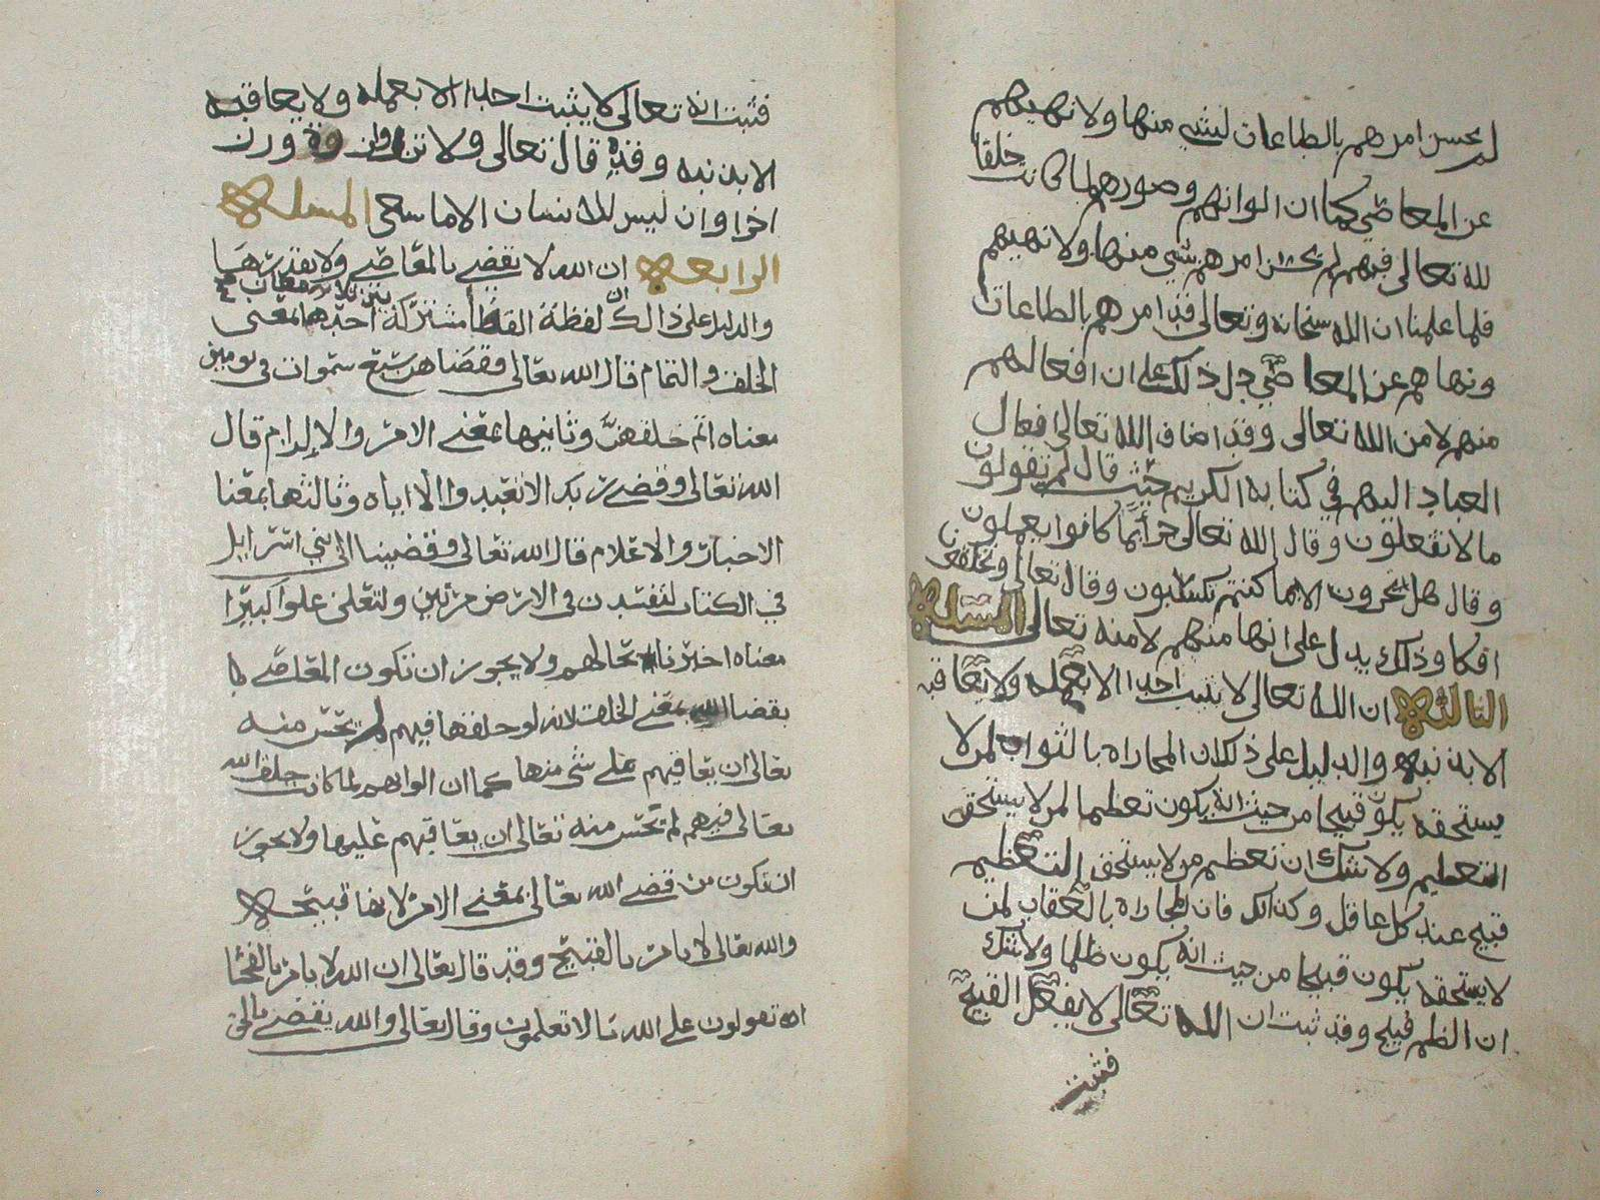 لم يحسن امرهم بالطاعات لشي منها ولا نهيهم
عن المعاصي كما ان الوانهم وصورهم لما كانت خلقا
لله تعالى فيهم لم يحسن امرهم بشي منها ولا نهيهم
فلما علمنا ان الله سبحانه وتعالى قد امرهم بالطاعات
ونهاهم عن المعاصي دل ذلك على ان افعالهم
منهم لا من الله تعالى وقد اضاف الله تعالى افعال
العباد اليهم في كتابه الكريم حيث قال لم تقولون
ما لا تفعلون وقال الله تعالى جزآ بما كانوا يعملون
وقال هل تجزون الا بما كنتم تكسبون وقال تعالى وتخلقون
افكا وذلك يدل على انها منهم لا منه تعالى المسئلة
الثالثة ان الله تعالى لا يثيب احدا الا بعمله ولا يعاقبه
الا بذنبه والدليل على ذلك ان المجازاه بالثواب لمن لا
يستحقه يكون قبيحا من حيث انه يكون تعظيما لمن لا يستحق
التعظيم ولا شك ان تعظيم من لا يستحق التعظيم
قبيح عند كل عاقل وكذلك فان المجازاه بالعقاب لمن
لا يستحقه يكون قبيحا من حيث انه يكون ظلما ولا شك
ان الظلم قبيح وقد ثبت ان الله تعالى لا يفعل القبيح
فثبت
فثبت انه تعالى لا يثيب احدا الا بعمله ولا يعاقبه
الا بذنبه وقد قال تعالى ولا تزر وازرة وزر
اخرا وان ليس للانسان الا ما سعى المسئلة
الرابعة ان الله لا يقضي بالمعاصي ولا يقدرها
والدليل على ذالك ان لفظة القضآ مشتركة بين ثلاثة معان احدها بمعنى
الخلق والتمام قال الله تعالى فقضاهن سبع سموات في يومين
معناه اتم خلقهن وثانيها بمعنى الامر والالزام قال
الله تعالى وقضى ربك الا تعبدوا الا اياه وثالثها بمعنا
الاخبار والاعلام قال الله تعالى وقضينا الى بني اسرايل
في الكتاب لتفسدن في الارض مرتين ولتعلن علوا كبيرا
معناه اخبرنا بحالهم ولا يجوز ان تكون المعاصي
بقضا الله بمعنى الخلق لانه لو خلقها فيهم لم يحسن منه
تعالى ان يعاقبهم على شي منها كما ان الوانهم لما كانت خلق الله
تعالى فيهم لم يحسن منه تعالى ان يعاقبهم عليها ولا يجوز
ان تكون من قضى الله تعالى بمعنى الامر لانها قبيحة
والله تعالى لا يامر بالقبيح وقد قال تعالى ان الله لا يامر بالفحشا
اتقولون على الله ما لا تعلمون وقال تعالى والله يقضي بالحق